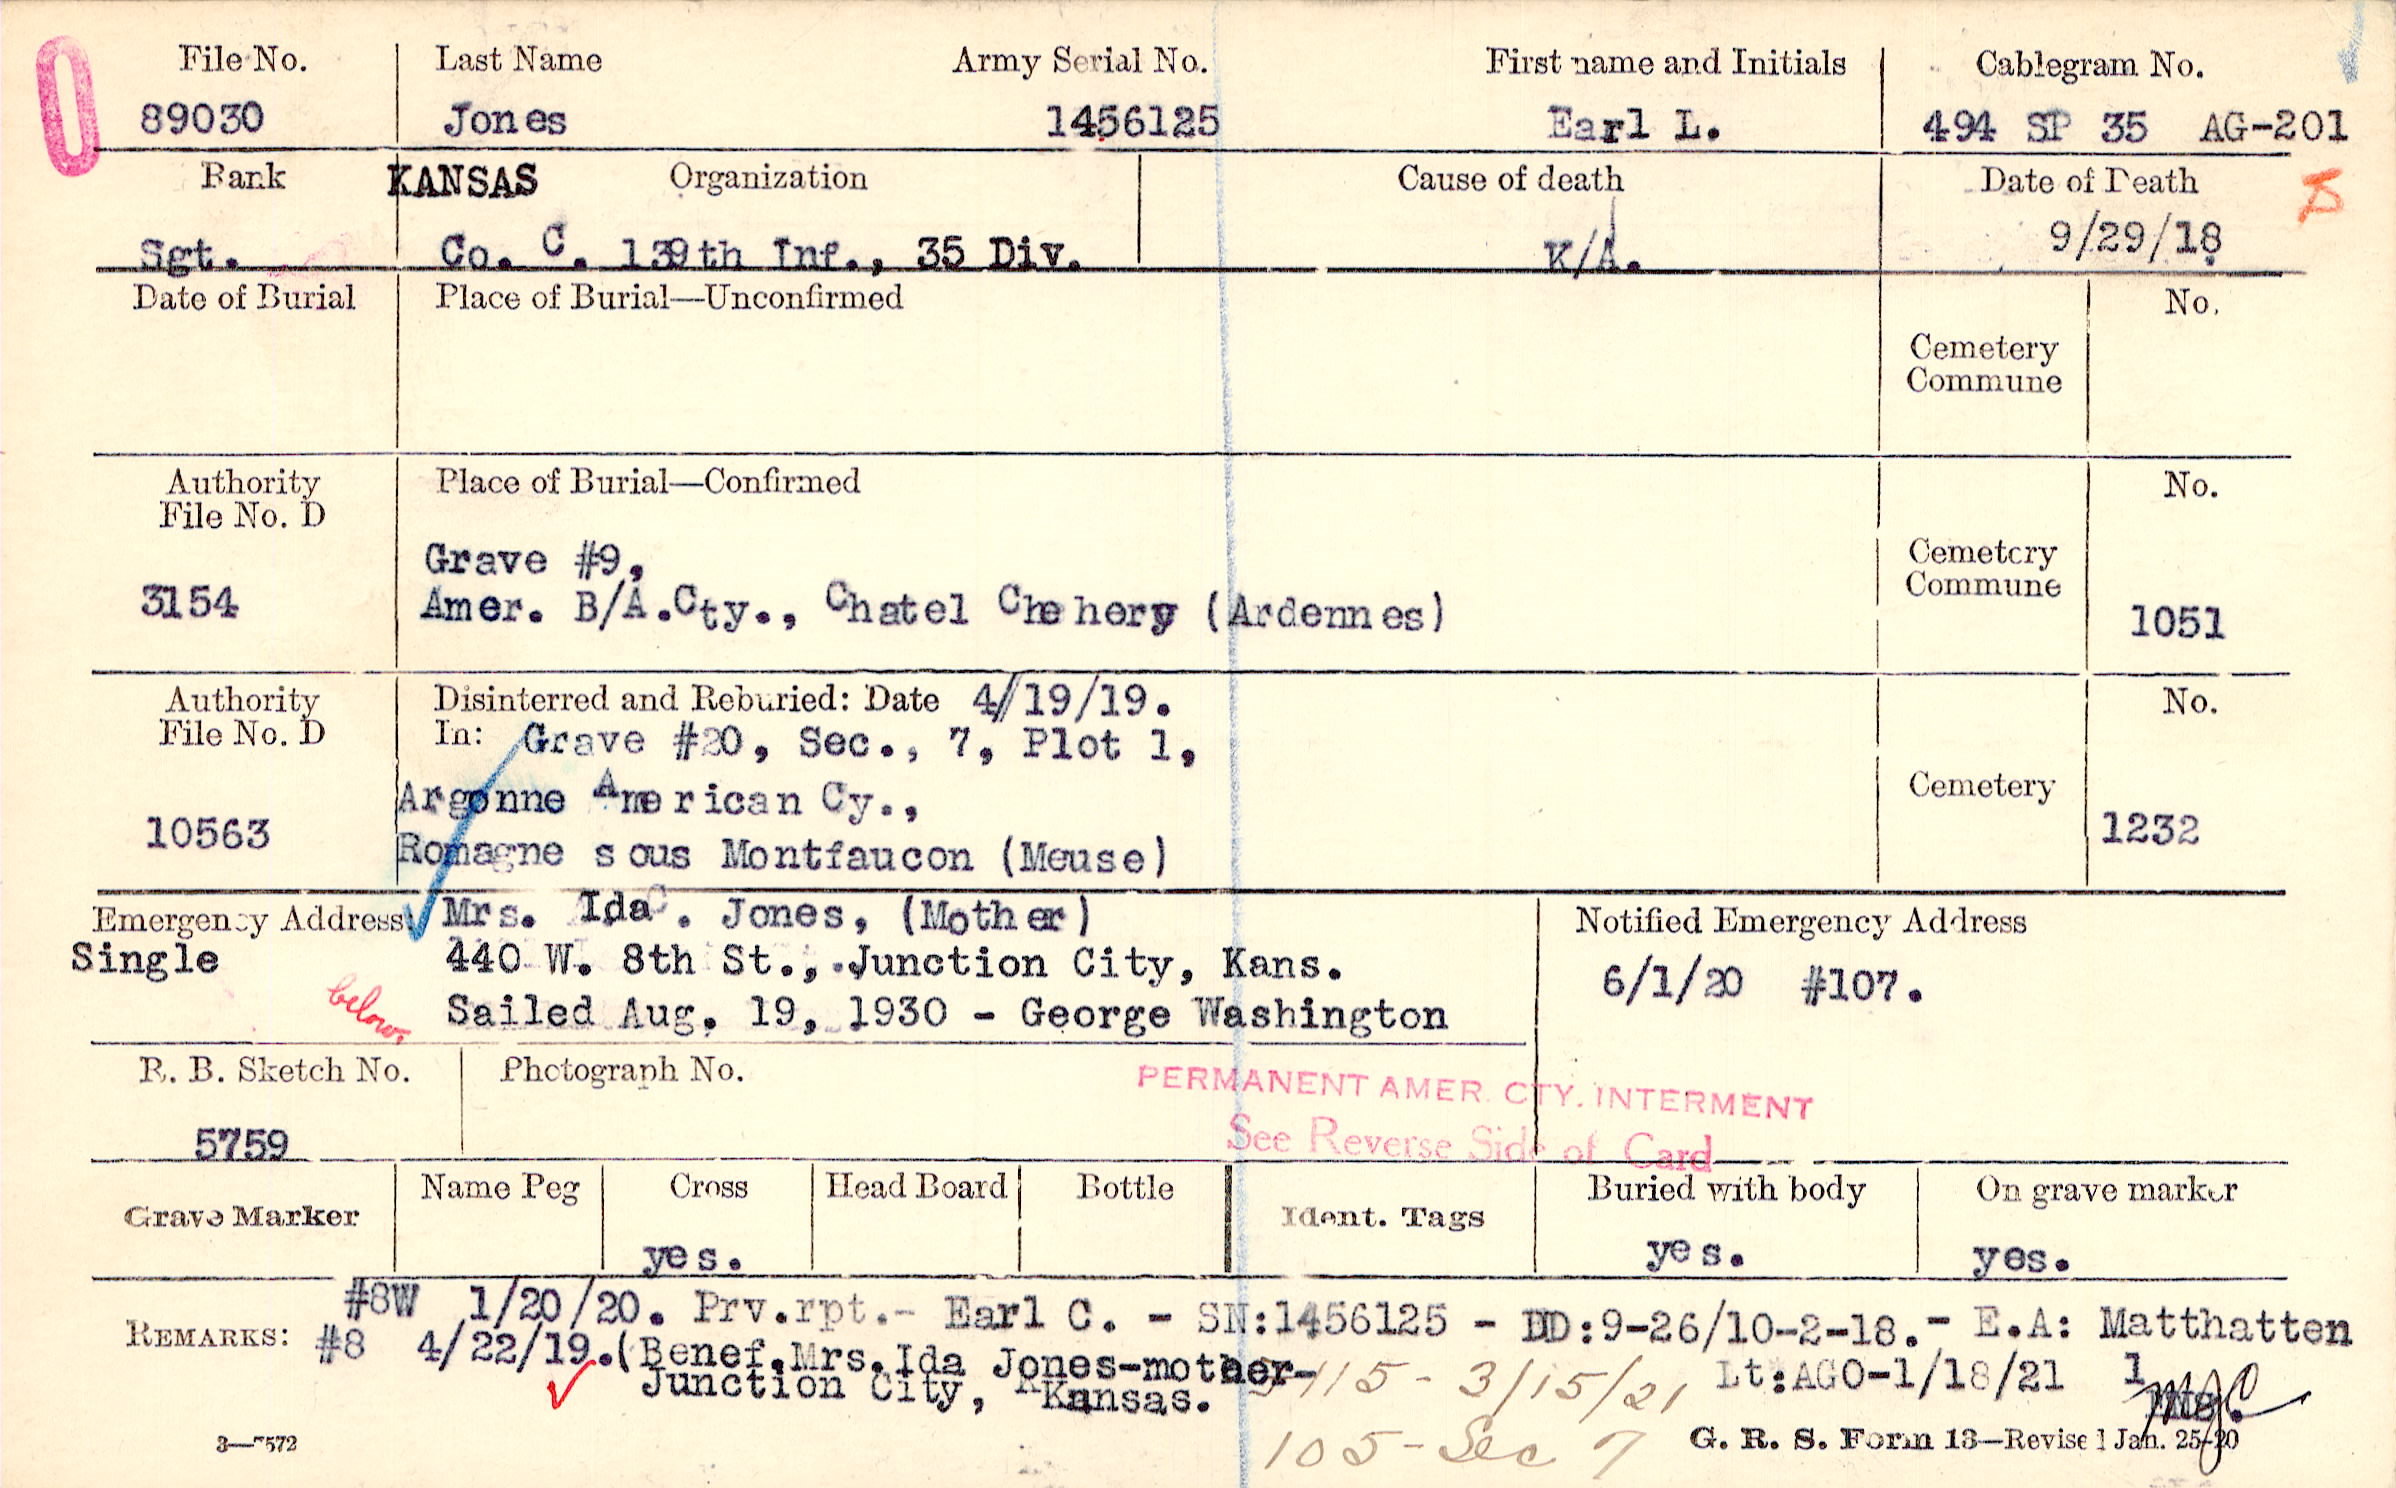 File No. Last Name Army Serial No. First name and Initials Cablegram No.
89030 Jones 1456125 Earl L. 494 SP 35 AG-201
Rank KANSAS Organization Cause of death Date of Death
Sgt. Co. C. 139th Inf., 35 Div. K/A. 9/29/18
Date of Burial Place of Burial—Unconfirmed No.
Cemetery
Commune
Authority Place of Burial—Confirmed No.
File No. D
Grave #9, Cemetery
3154 Amer. B/A.Cty., Chatel Chehery (Ardennes) Commune 1051
Authority Disinterred and Reburied: Date 4/19/19. No.
File No. D In: Grave #20, Sec., 7, Plot 1,
Argonne American Cy., Cemetery
10563 Romagne sous Montfaucon (Meuse) 1232
Emergency Address Mrs. Ida C. Jones, (Mother) Notified Emergency Address
Single 440 W. 8th St., Junction City, Kans. 6/1/20 #107.
below. Sailed Aug. 19, 1930 - George Washington
R. B. Sketch No. Photograph No. PERMANENT AMER. CTY. INTERMENT
5759 See Reverse Side of Card
Grave Marker Name Peg Cross Head Board Bottle Ident. Tags Buried with body On grave marker
yes. yes. yes.
#8W 1/20/20. Prv.rpt.- Earl C. - SN:1456125 - DD:9-26/10-2-18.- E.A: Matthatten
REMARKS: #8 4/22/19.(Benef.Mrs.Ida Jones-mother- 115 - 3/15/21 Lt:AGO-1/18/21 1
Junction City, Kansas.
105 - Sec 7
3—7572 G. R. S. Form 13—Revised Jan. 25-20